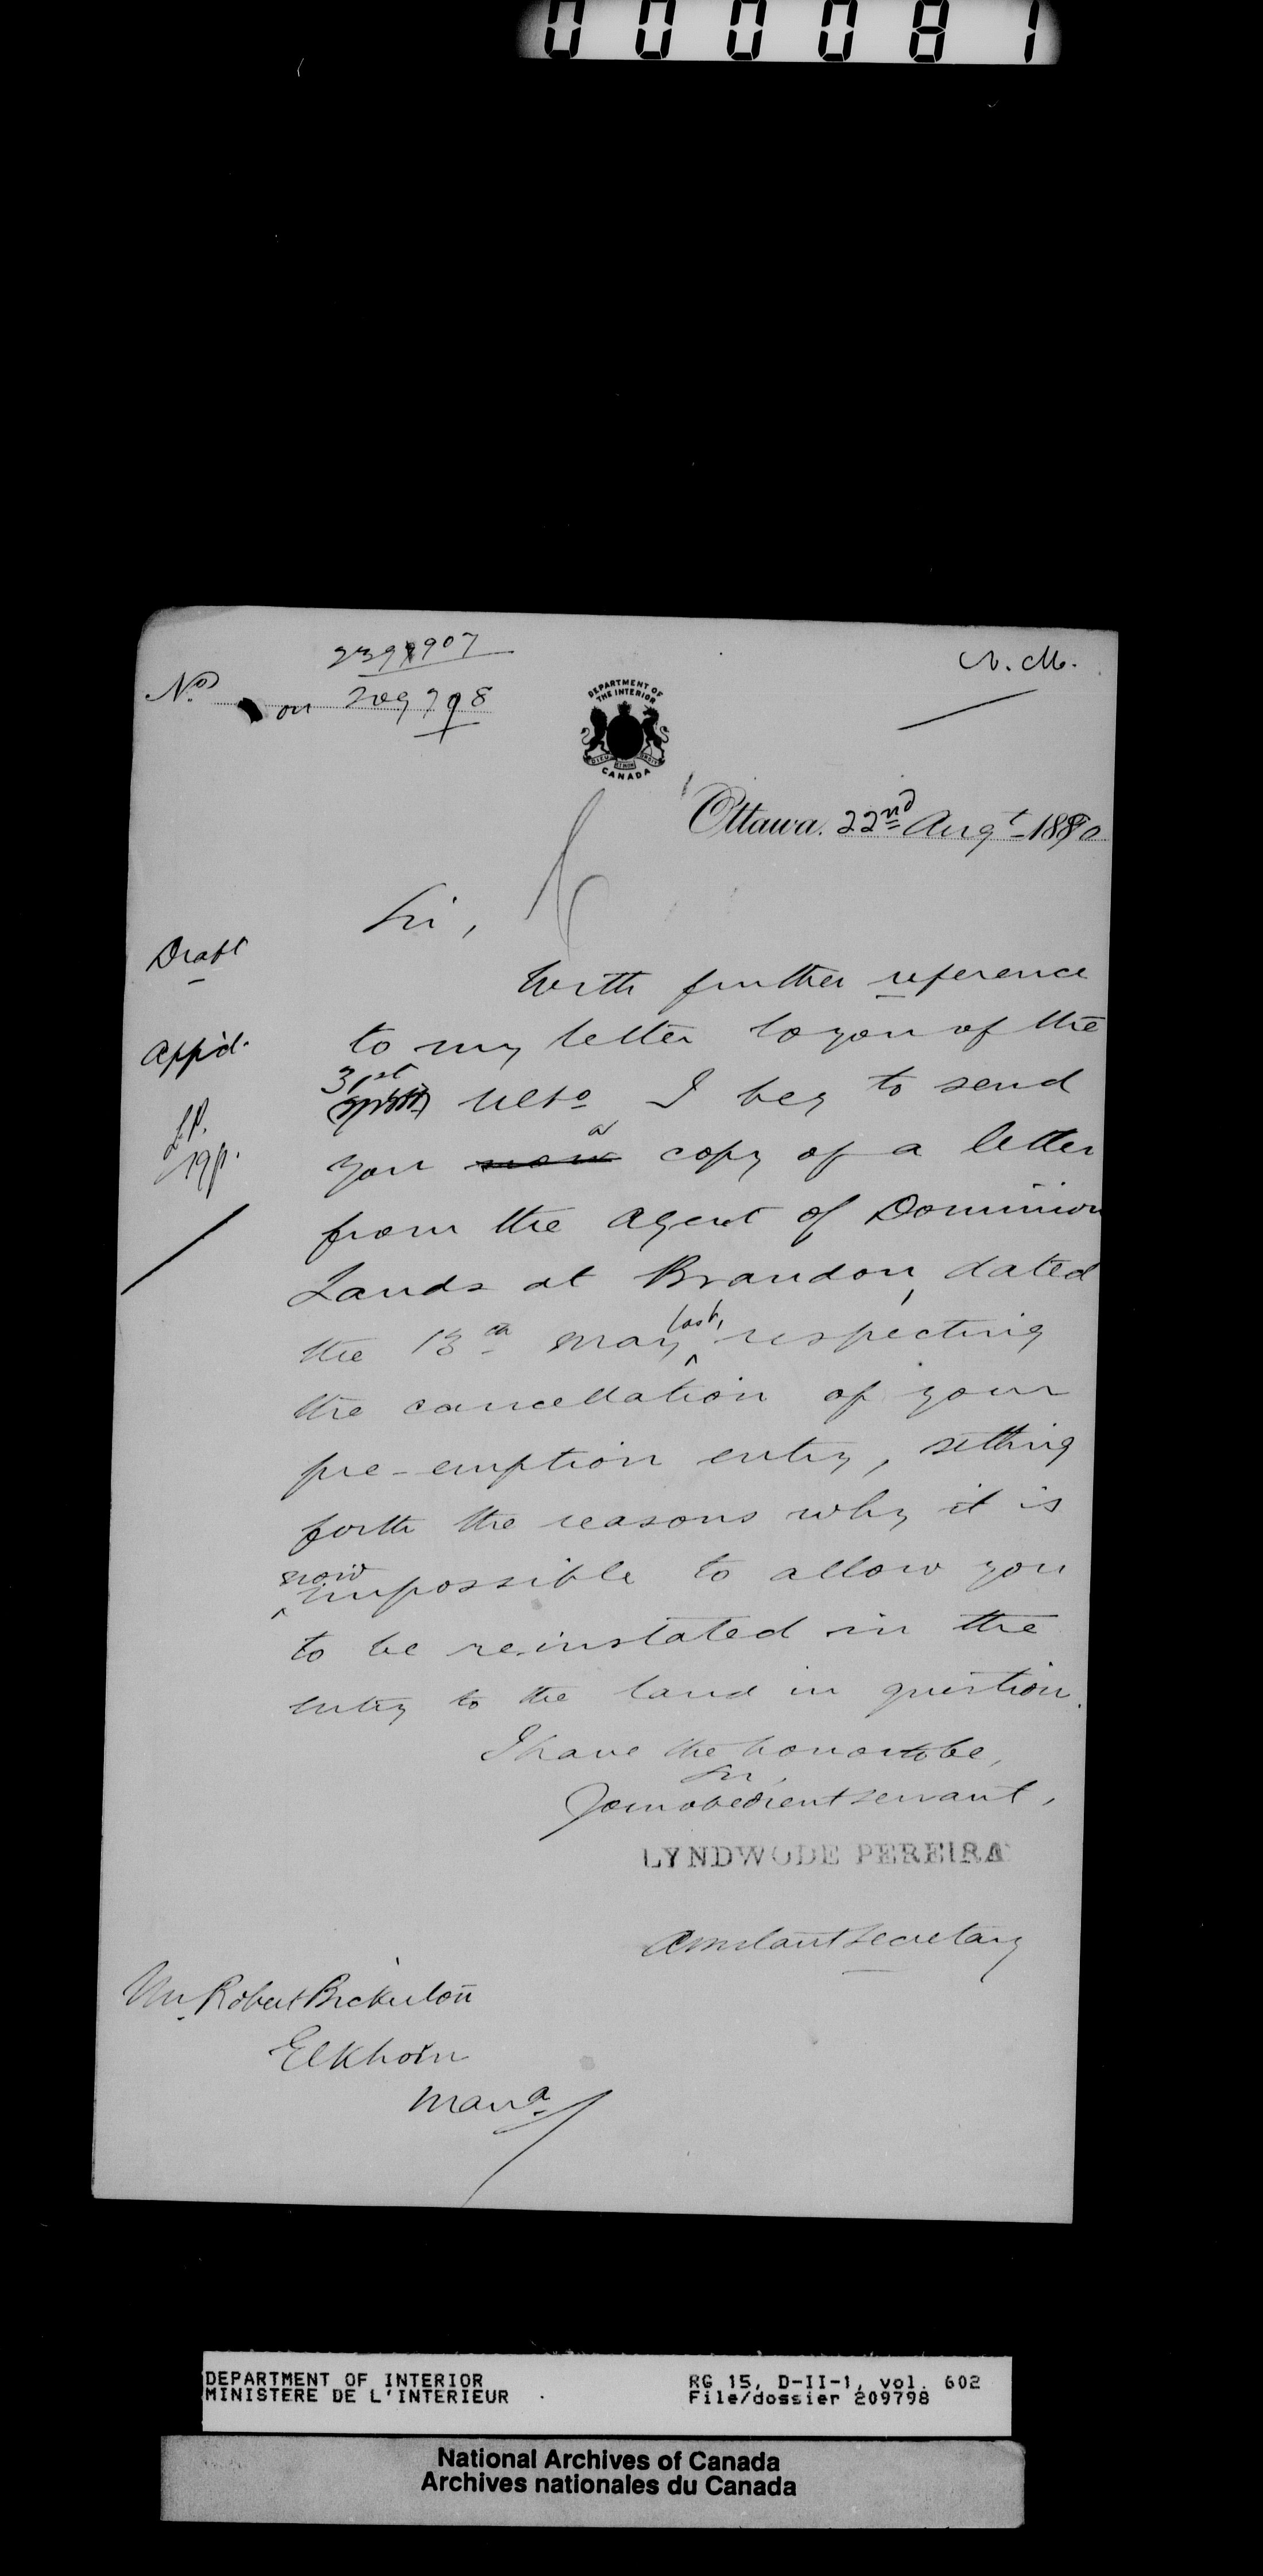 000081
239907
No on 209798
N. M.
DEPARTMENT OF
THE INTERIOR
CANADA
Ottawa. 22nd Augt 1890
Sir,
Draft
With further reference
to my letter to you of the
Appd.
31st ulto I beg to send
L.P.
you now a copy of a letter
from the Agent of Dominion
Lands at Brandon, dated
the 13th May last, respecting
the cancellation of your
pre-emption entry, setting
forth the reasons why it is
now impossible to allow you
to be reinstated in the
entry to the land in question.
I have the honor to be,
Sir,
Your obedient servant,
LYNDWODE PEREIRA
Assistant Secretary
Mr. Robert Bickerton
Elkhorn
Mana
DEPARTMENT OF INTERIOR RG 15, D-II-1, vol. 602
MINISTERE DE L'INTERIEUR File/dossier 209798
National Archives of Canada
Archives nationales du Canada